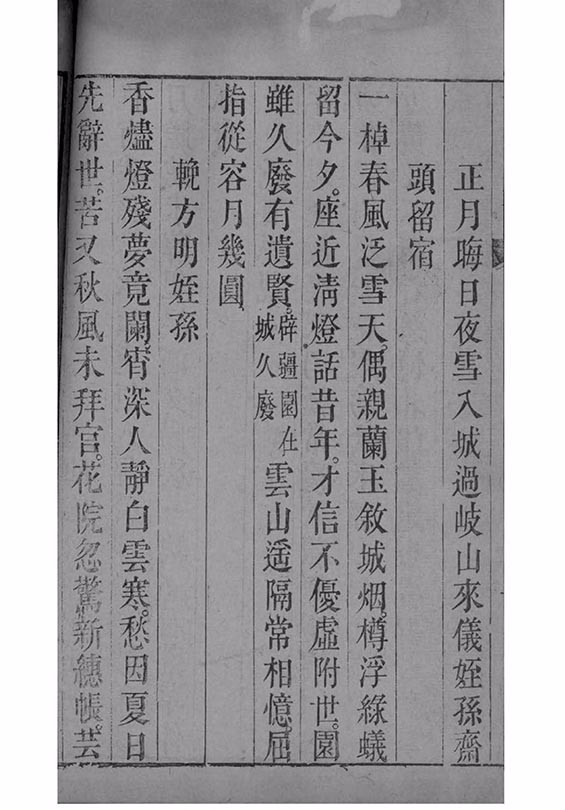 正月晦日夜雪入城過岐山來儀姪孫齋
頭留宿
一棹春風泛雪天。偶親蘭玉敘城烟。樽浮綠蟻
留今夕。座近淸燈話昔年。才信不優虛附世。園
雖久廢有遺賢。辟疆園在城久廢雲山遥隔常相憶。屈
指從容月幾圓。
輓方明姪孫
香燼燈殘夢竟闌。宵深人靜白雲寒。愁因夏日
先辭世。苦又秋風未拜官。花院忽驚新繐帳。芸